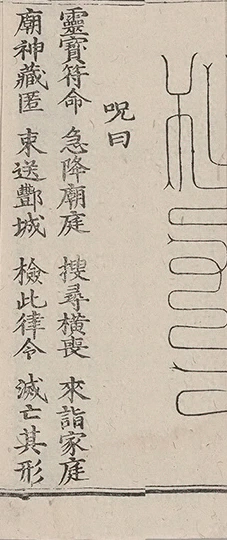 呪曰
靈寶符命 急降廟庭 搜尋橫喪 來詣家庭
廟神藏匿 束送酆城 檢此律令 滅亡其形